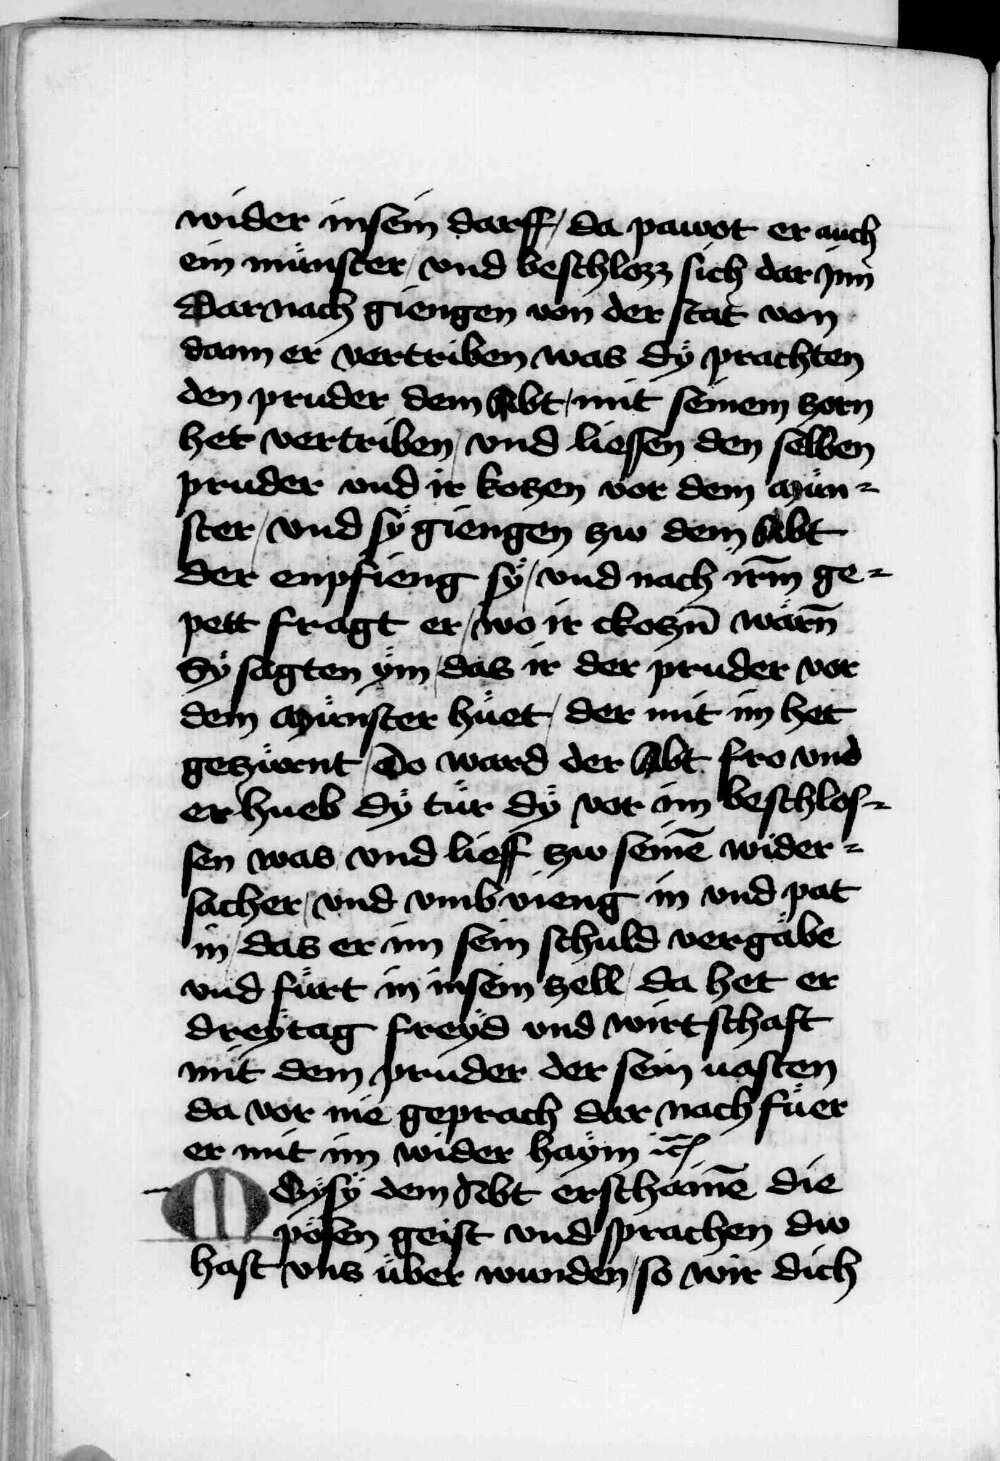 wider in sein darff / da pawot er auch
ein münster / vnd beschlozz sich dar jnn
Darnach giengen von der stat von
dann er vertriben was dÿ prachten
den pruder dem Abt / mit seinem zorn
het vertriben / vnd liessen den selben
pruder vnd ir kotzen vor dem mün=
ster / vnd sÿ giengen zw dem Abt
der enpfieng sÿ / vnd nach irm̄ ge=
pett fragt er / wo ir ckotzn̄ wärn̄
Sÿ sagten ÿm / das ir der pruder vor
dem münster hüet / der mit im het
gezürnt / Do ward der Abt fro vnd
er hueb dÿ tür dÿ vor im beschlos=
sen was vnd lieff zw seinē wider=
sacher / vnd vmbvieng in vnd pat
in / das er im sein schuld vergäbe
vnd fürt in in sein zell / da het er
dreÿ tag freÿd vnd wirtschaft
mit dem pruder der sein uasten
da vor nie geprach dar nach füer
er mit im wider haÿm ꝛc̄
MOÿsÿ dem Abt erschainē die
pösen geist vnd sprachen dw
hast vns über wunden / so wir dich